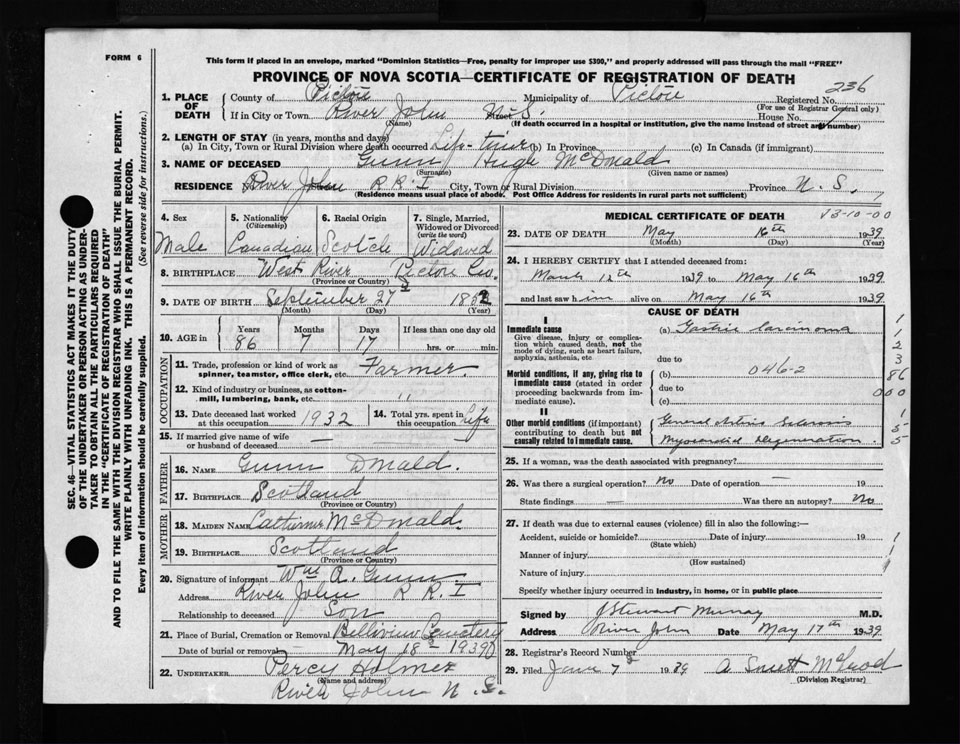 FORM 6
This form if placed in an envelope, marked "Dominion Statistics—Free, penalty for improper use $300," and properly addressed will pass through the mail "FREE"
PROVINCE OF NOVA SCOTIA—CERTIFICATE OF REGISTRATION OF DEATH
236
1. PLACE OF DEATH County of Pictou Municipality of Pictou Registered No.
(For use of Registrar General only)
If in City or Town River John N.S. House No.
(Name) (If death occurred in a hospital or institution, give the name instead of street and number)
2. LENGTH OF STAY (in years, months and days)
(a) In City, Town or Rural Division where death occurred Life-time (b) In Province (c) In Canada (if immigrant)
3. NAME OF DECEASED Gunn Hugh McDonald
(Surname) (Given name or names)
RESIDENCE No. River John R R I City, Town or Rural Division Province N. S.
(Residence means usual place of abode. Post Office Address for residents in rural parts not sufficient)
4. Sex Male
5. Nationality (Citizenship) Canadian
6. Racial Origin Scotch
7. Single, Married, Widowed or Divorced (write the word) Widowed
8. BIRTHPLACE West River Pictou Co.
(Province or Country)
9. DATE OF BIRTH September 27 1852
(Month) (Day) (Year)
10. AGE in Years Months Days If less than one day old
86 7 17 hrs. or min.
11. Trade, profession or kind of work as spinner, teamster, office clerk, etc. Farmer.
12. Kind of industry or business, as cotton-mill, lumbering, bank, etc. "
13. Date deceased last worked at this occupation 1932
14. Total yrs. spent in this occupation Life
15. If married give name of wife or husband of deceased —
FATHER
16. NAME Gunn Donald.
17. BIRTHPLACE Scotland
(Province or Country)
MOTHER
18. MAIDEN NAME Catherine McDonald.
19. BIRTHPLACE Scotland
(Province or Country)
20. Signature of informant Wm A. Gunn
Address River John R R I
Relationship to deceased Son
21. Place of Burial, Cremation or Removal Cemetery
Date of burial or removal May 18 - 1939
22. UNDERTAKER Percy Holmes
(Name and address)
River John N. S.
MEDICAL CERTIFICATE OF DEATH
V3-10-00
23. DATE OF DEATH May 16th 1939
(Month) (Day) (Year)
24. I HEREBY CERTIFY that I attended deceased from:
March 12th 1939 to May 16th 1939
and last saw him alive on May 16th 1939.
CAUSE OF DEATH
I
Immediate cause (a) Gastric Carcinoma
Give disease, injury or complication which caused death, not the mode of dying, such as heart failure, asphyxia, asthenia, etc
due to
Morbid conditions, if any, giving rise to immediate cause (stated in order proceeding backwards from immediate cause).
(b) 046-2
due to
(c)
II
Other morbid conditions (if important) contributing to death but not causally related to immediate cause.
General Arterio Sclerosis
Myocardial Degeneration.
1
1
2
3
86
000
1
5
5
25. If a woman, was the death associated with pregnancy?
26. Was there a surgical operation? No Date of operation — 19
State findings — Was there an autopsy? No
27. If death was due to external causes (violence) fill in also the following:—
Accident, suicide or homicide? Date of injury 19
(State which)
Manner of injury
(How sustained)
Nature of injury
Specify whether injury occurred in industry, in home, or in public place
Signed by J Stewart Murray M.D.
Address River John Date May 17th 1939
28. Registrar's Record Number
29. Filed June 7 1939 A
(Division Registrar)
SEC. 46—VITAL STATISTICS ACT MAKES IT THE DUTY
OF THE UNDERTAKER OR PERSON ACTING AS UNDER-
TAKER TO OBTAIN ALL THE PARTICULARS REQUIRED
IN THE "CERTIFICATE OF REGISTRATION OF DEATH"
AND TO FILE THE SAME WITH THE DIVISION REGISTRAR WHO SHALL ISSUE THE BURIAL PERMIT.
WRITE PLAINLY WITH UNFADING INK. THIS IS A PERMANENT RECORD.
Every item of information should be carefully supplied. (See reverse side for instructions.)